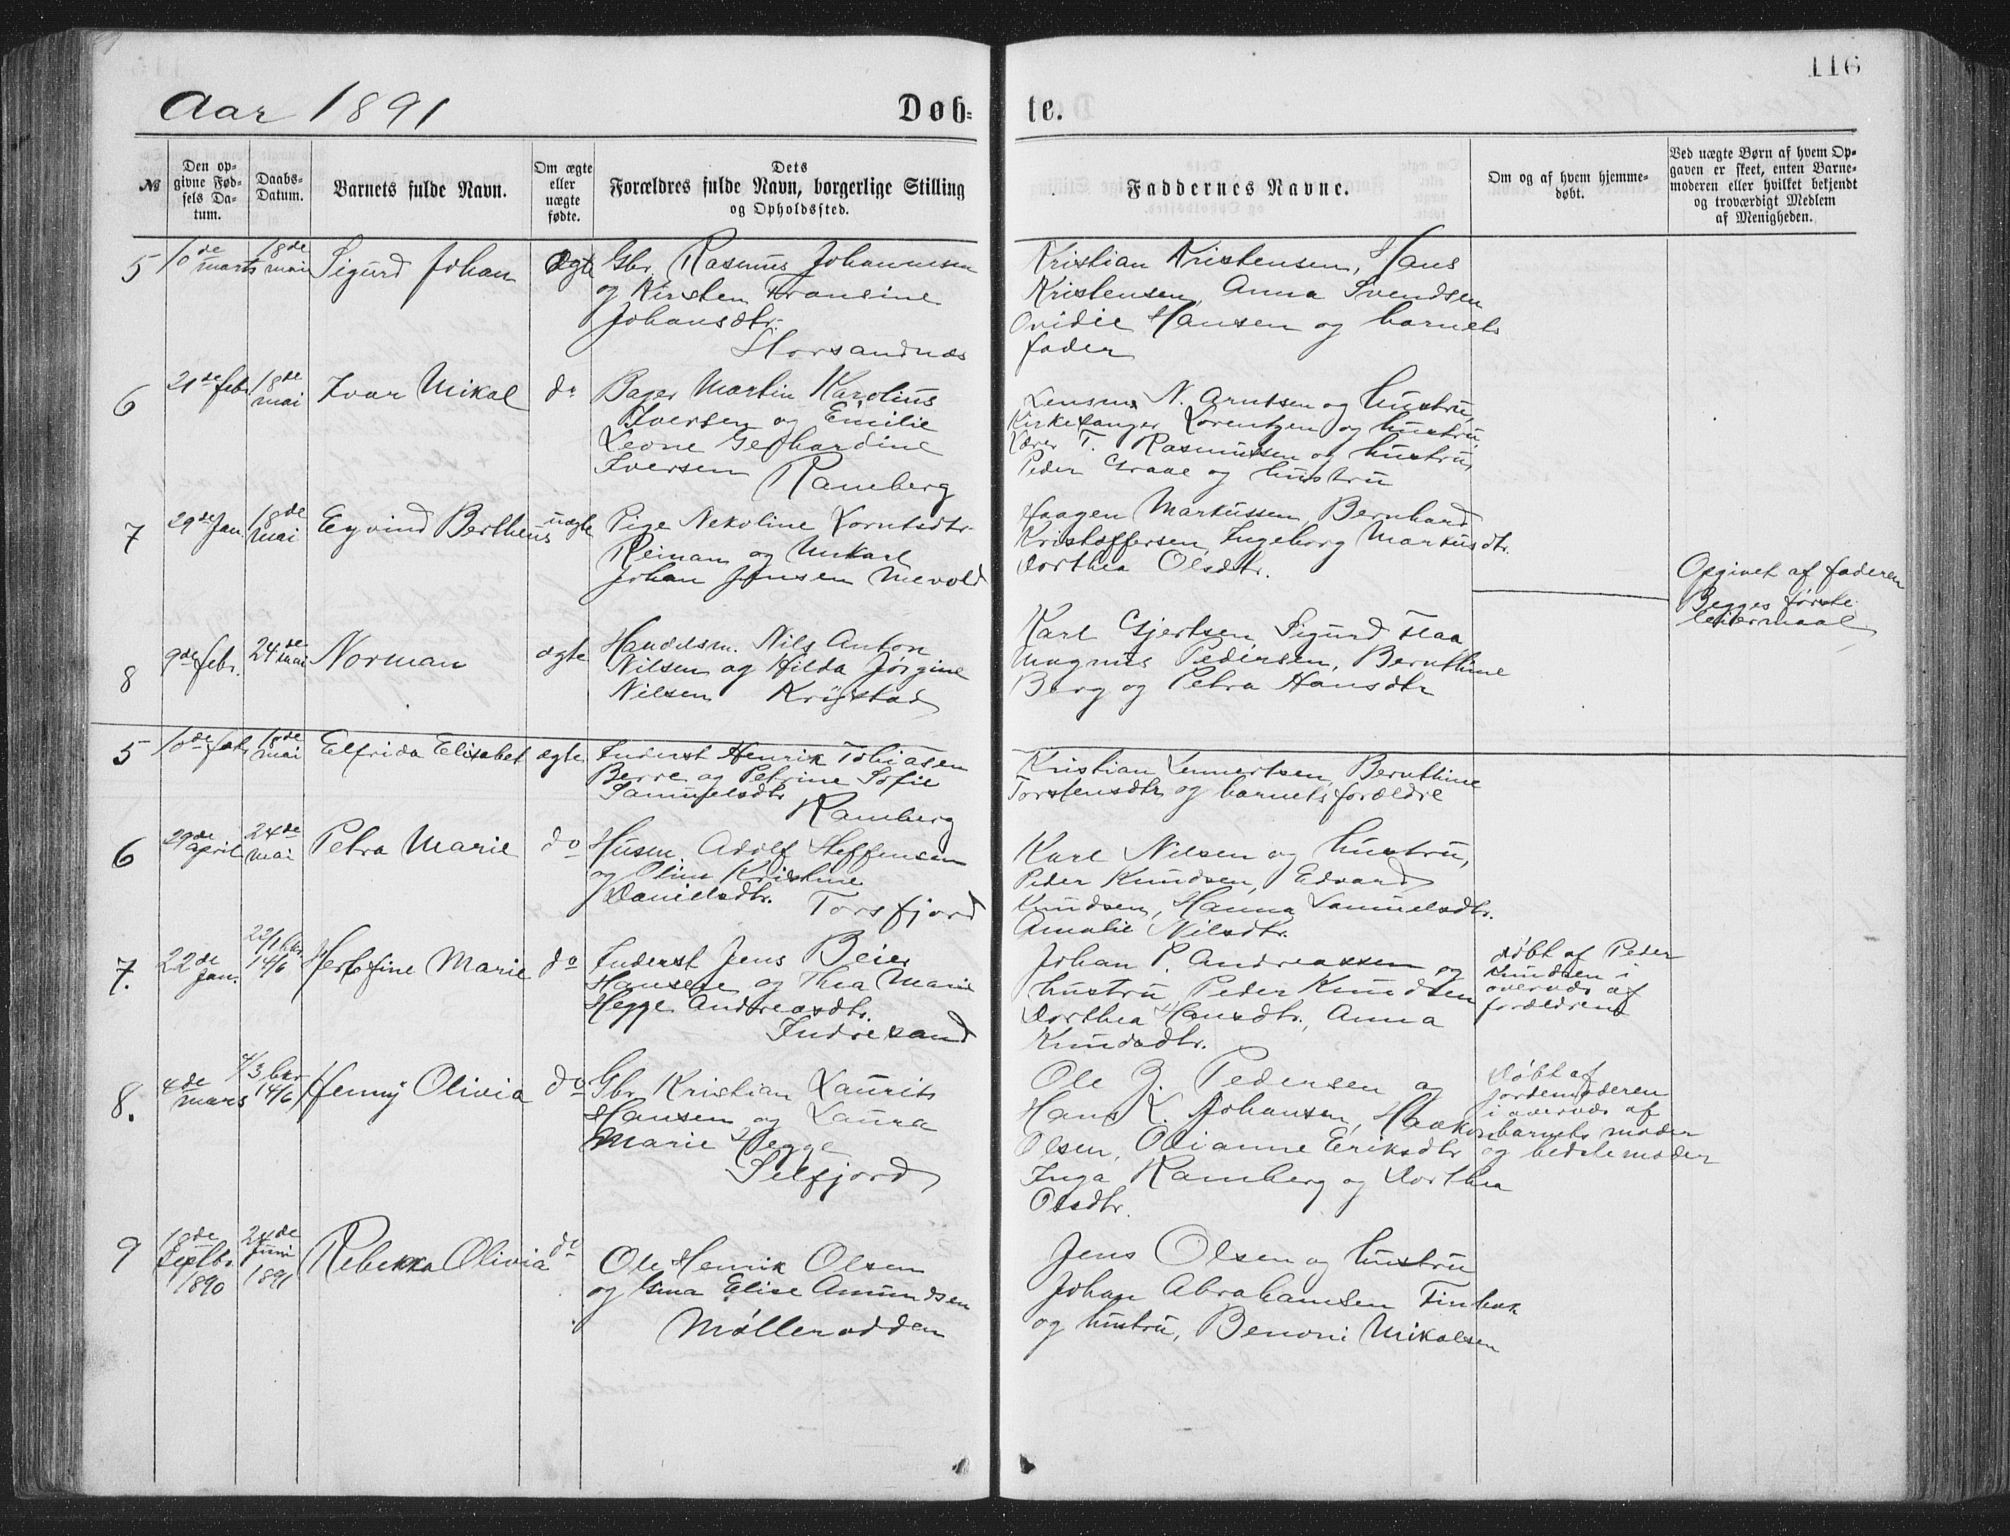 116
Aar 1891
Døb=
te.
№
Den op-
givne Fød-
sels Da-
tum.
Daabs-
Datum.
Barnets fulde Navn.
Om ægte
eller
uægte
fødte.
Dets
Forældres fulde Navn, borgerlige Stilling
og Opholdssted.
Faddernes Navne.
Om og af hvem hjemme-
døbt.
Ved uægte Børn af hvem Op-
gaven er skeet, enten Barne-
moderen eller hvilket bekjendt
og troværdigt Medlem
af Menigheden.
5 10de marts 18de mai Sigurd Johan ægte
Gbr. Rasmus Johannesen
og Kirsten Fransine
Johansdtr.
Storsandnæs
Kristian Kristensen, Hans
Kristensen, Anna Svendsen
Ovidie Hansen og barnets
fader
6 21de febr. 18de mai Ivar Mikal do
Bager Martin Karolius
Iversen og Emilie
Leone Gerhardine
Iversen Ramberg
Lensm. N. Arntsen og hustru,
Kirkesanger Lorentzen og hustru,
Lærer T. Rasmussen og hustru,
Peder Graae og hustru
7 29de Jan. 18de Mai Eyvind Bertheus uægte
Pige Nekoline Lorntsdtr.
Reinan og Unkarl
Johan Jensen Mevold
Haagen Markussen Bernhard
Kristoffersen, Ingeborg Markusdtr.
Dorthea Olsdtr.
Opgivet af faderen
Begges første
leiermaal
8 9de febr. 24de mai Norman ægte
Handelsm. Nils Anton
Nilsen og Hilda Jørgine
Nilsen Krystad
Karl Gjertsen, Sigurd Haa
Magnus Pedersen, Beruthine
Berg og Petra Hansdtr
5 10de febr. 18de mai Elfrida Elisabet ægte
Inderst Henrik Tobiasen
Berre og Petrine Sofie
Samuelsdtr
Ramberg
Kristian Lennertsen, Beruthine
Torstensdtr og barnets forældre
6 29de april 24de mai Petra Marie do
Husm. Adolf Steffensen
og Oline Kristine
Danielsdtr.
Torsfjord
Karl Nilsen og hustru,
Peder Knudsen, Edvard
Knudsen, Hanna Samuelsdtr.
Amalie Nilsdtr.
7. 22de Jan. 22/1 14/6 Herlefine Marie do
Inderst Jens Beier
Hansen og Thea Marie
Hegge Andreasdtr.
Indresand
Johan P. Andreassen og
hustru, Peder Knudsen
Dorthea Hansdtr., Anna
Knudsdtr.
døbt af Peder
Knudsen i
overvær af
forældrene
8. 4de mars 4/3 14/6 Henny Olivia do
Gbr. Kristian Laurits
Hansen og Laura
Marie Hegge
Selfjord
Ole J. Pedersen og
Hans K. Johansen, Haakon
Olsen, Olianne Eriksdtr
Inga Ramberg og Dorthea
Olsdtr.
Døbt af
jordemoderen
i overvær af
barnets moder
og bedstemoder
9 18de Septbr. 1890 24de Juni 1891 Rebekka Olivia do
Ole Henrik Olsen
og Gina Elise Amundsen
Møllerodden
Jens Olsen og hustru
Johan Abrahamsen Finbak
og hustru, Benoni Mikalsen